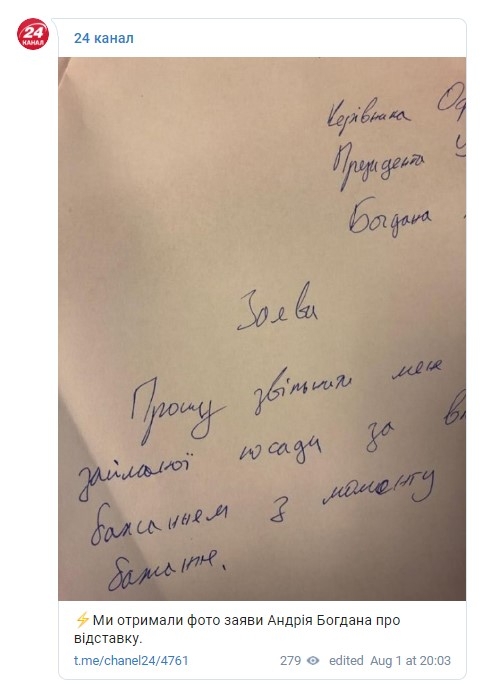 24
КАНАЛ
24 канал
Керівника Оф
Президента У
Богдана
Заява
Прошу звільнити мене
займаної посади за вл
бажанням з моменту
бажання.
⚡Ми отримали фото заяви Андрія Богдана про
відставку.
t.me/chanel24/4761
279 edited Aug 1 at 20:03